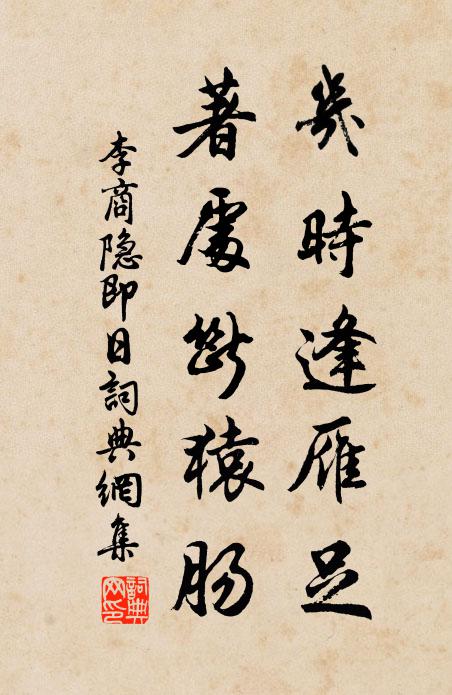 幾時逢雁足
著處斷猿腸
李商隐即日詞典網集
詞典网印